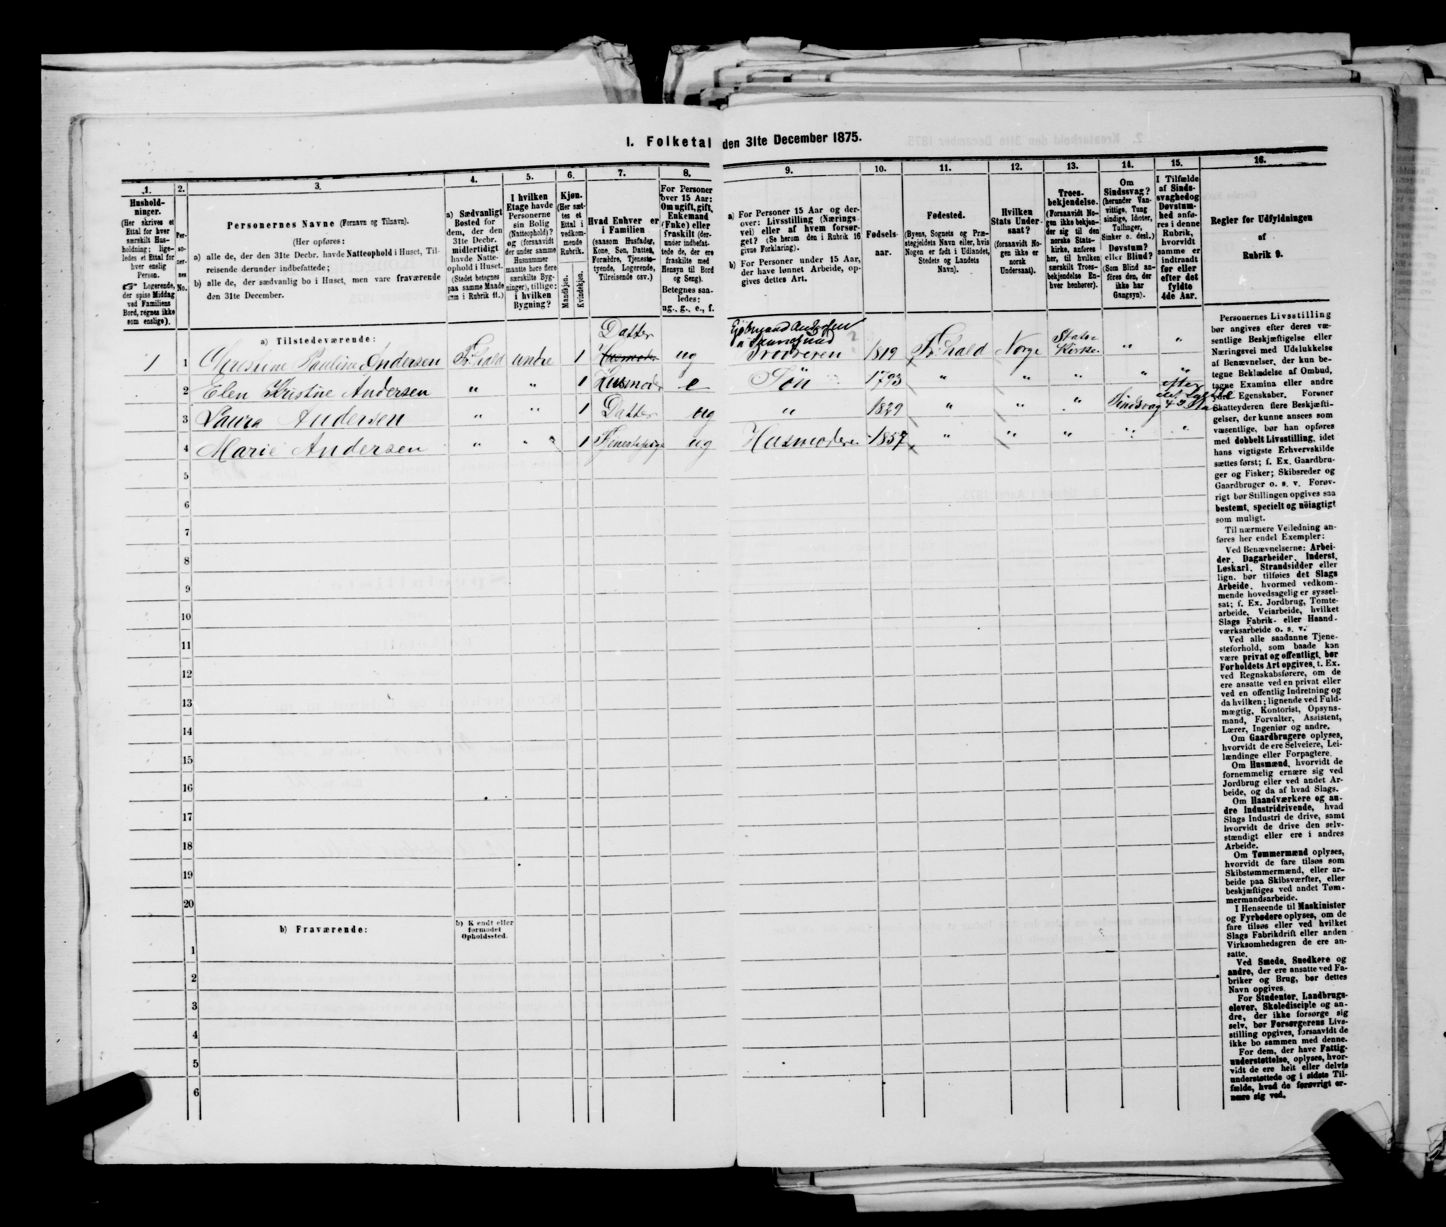 I. Folketal den 31te December 1875.
1.
Husholdninger.
(Her skrives et
Ettal for hver
særskilt Husholdning; ligeledes
et Ettal for
hver enslig
Person.
☞ Logerende,
der spise Middag
ved Familiens
Bord, regnes ikke
som enslige).
2.
Personernes
No.
3.
Personernes Navne (Fornavn og Tilnavn).
(Her opføres:
a) alle de, der den 31te Decbr. havde Natteophold i Huset, Tilreisende
derunder indbefattede;
b) alle de, der sædvanlig bo i Huset, men vare fraværende
den 31te December.
4.
a) Sædvanligt
Bosted for
dem, der den
31te Decbr.
midlertidigt
havde Natteophold
i Huset.
(Stedet betegnes
paa samme Maade
som i Rubrik 11.)
5.
I hvilken
Etage havde
Personerne
sin Bolig
(Natteophold)?
og (forsaavidt
der under samme
Husnummer
maatte høre flere
særskilte Bygninger),
tillige:
i hvilken
Bygning?
6.
Kjøn.
(Her sættes
et
Ettal i
vedkommende
Rubrik.
Mandkjøn.
Kvindekjøn.
7.
Hvad Enhver er
i Familien
(saasom Husfader,
Kone, Søn, Datter,
Forældre, Tjenestetyende,
Logerende,
Tilreisende osv.)
8.
For Personer
over 15 Aar:
Om ugift, gift,
Enkemand
(Enke) eller
fraskilt (derunder
indbefattede
de, der ere
fraskilte med
Hensyn til Bord
og Seng).
Betegnes saaledes:
ug., g., e., f.
9.
a) For Personer 15 Aar og derover:
Livsstilling (Næringsvei)
eller af hvem forsørget?
(Se herom den i Rubrik 16
givne Forklaring).
b) For Personer under 15 Aar,
der have lønnet Arbeide, opgives
dettes Art.
10.
Fødselsaar.
11.
Fødested.
(Byens, Sognets og Præstegjeldets
Navn eller, hvis
Nogen er født i Udlandet,
Stedets og Landets
Navn).
12.
Hvilken
Stats Undersaat?
(forsaavidt Nogen
ikke er
norsk
Undersaat).
13.
Troesbekjendelse.
(Forsaavidt Nogen
ikke bekjender
sig til den
norske Statskirke,
anføres
her, til hvilken
særskilt Troesbekjendelse
Enhver
henhører).
14.
Om
Sindssvag?
(herunder Vanvittige,
Tung
sindige, Idioter,
Tullinger,
Sinker o. desl.)
Døvstum?
eller Blind?
(Som Blind anføres
den, der
ikke har
Gangsyn).
15.
I Tilfælde
af Sindssvaghed
og
Døvstumhed
anføres
i denne
Rubrik,
hvorvidt
samme er
indtraadt
før eller
efter det
fyldte
4de Aar.
16.
Regler for Udfyldningen
af
Rubrik 9.
a) Tilstedeværende:
1 1 Christine Pauline Andersen Fr.hald undre 1 Datter Husmoder ug Brødreren 1819 Fr.hald Norge Stats Kirke " "
2 Elen Kristine Andersen " " 1 Husmoder e Søn 1793 " " " " "
3 Laura Andersen " " 1 Datter ug " 1829 " " " Sindsvag efter det fyldte 4de
4 Marie Andersen " " 1 Tjenestepige ug Husmoderen 1857 " " " " "
5
6
7
8
9
10
11
12
13
14
15
16
17
18
19
20
b) Fraværende:
b) Kjendt eller
formodet
Opholdssted.
1
2
3
4
5
6
Personernes Livsstilling
bør angives efter deres væsentlige
Beskjæftigelse eller
Næringsvei med Udelukkelse
af Benævnelser, der kun betegne
Beklædelse af Ombud,
tagne Examina eller andre
ydre Egenskaber. Forener
Skatteyderen flere Beskjæftigelser,
der kunne ansees som
væsentlige, bør han opføres
med dobbelt Livsstilling, idet
hans vigtigste Erhvervskilde
sættes først; f. Ex. Gaardbruger
og Fisker; Skibsreder og
Gaardbruger o. s. v. Forøvrigt
bør Stillingen opgives saa
bestemt, specielt og nøiagtigt
som muligt.
Til nærmere Veiledning anføres
her endel Exempler:
Ved Benævnelserne: Arbeider,
Dagarbeider, Inderst,
Løskarl, Strandsidder eller
lign. bør tilføies det Slags
Arbeide, hvormed vedkommende
hovedsagelig er sysselsat;
f. Ex. Jordbrug, Tomtearbeide,
Veiarbeide, hvilket
Slags Fabrik- eller Haandværksarbeide
o. s. v.
Ved alle saadanne Tjenesteforhold,
som baade kan
være privat og offentligt, bør
Forholdets Art opgives, t. Ex.
ved Regnskabsførere, om de
ere ansatte ved en privat eller
ved en offentlig Indretning og
da hvilken; lignende ved Fuldmægtig,
Kontorist, Opsynsmand,
Forvalter, Assistent,
Lærer, Ingeniør og andre.
Om Gaardbrugere oplyses,
hvorvidt de ere Selveiere, Leilændinge
eller Forpagtere.
Om Husmænd, hvorvidt de
fornemmelig ernære sig ved
Jordbrug eller ved andet Arbeide,
og da af hvad Slags.
Om Haandværkere og andre
Industridrivende, hvad
Slags Industri de drive, samt
hvorvidt de drive den selvstændigt
eller ere i andres
Arbeide.
Om Tømmermænd oplyses,
hvorvidt de fare tilsøs som
Skibstømmermænd, eller arbeide
paa Skibsværfter, eller
beskjæftiges ved andet Tømmermandsarbeide.
I Henseende til Maskinister
og Fyrbødere oplyses, om de
fare tilsøs eller ved hvilket
Slags Fabrikdrift eller anden
Virksomhedsgren de ere ansatte.
Ved Smede, Snedkere og
andre, der ere ansatte ved Fabriker
og Brug, bør dettes
Navn opgives.
For Studenter, Landbrugselever,
Skoledisciple og andre,
der ikke forsørge sig
selv, bør Forsørgerens Livsstilling
opgives, forsaavidt de
ikke bo sammen med denne.
For dem, der have Fattigunderstøttelse,
oplyses, hvorvidt
de ere helt eller delvis
understøttede og i sidste Tilfælde,
hvad de forøvrigt ernære
sig ved.